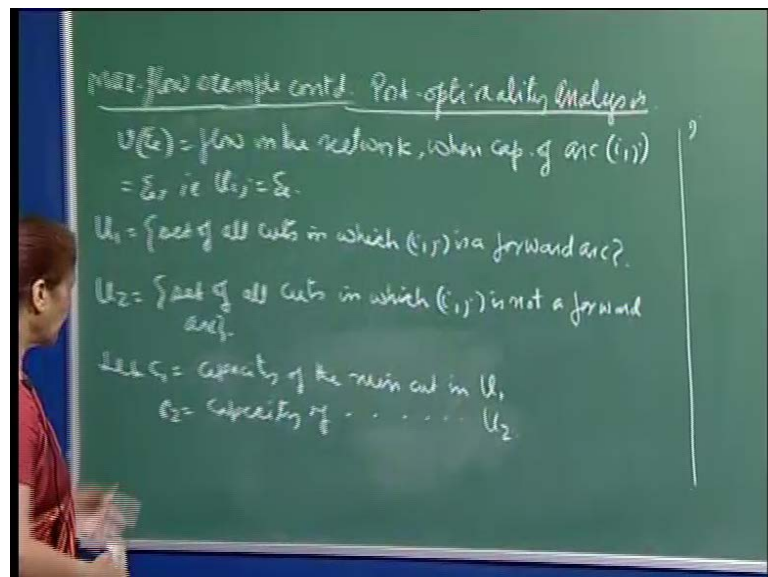 Max-flow example contd. Post-optimality Analysis.
v(ξ) = flow in the network, when cap. of arc (i,j)
= ξ, ie Uij = ξ.
U1 = {set of all cuts in which (i,j) is a forward arc}.
U2 = {set of all cuts in which (i,j) is not a forward
arc}.
Let C1 = capacity of the min cut in U1
C2 = capacity of . . . . . . . U2.